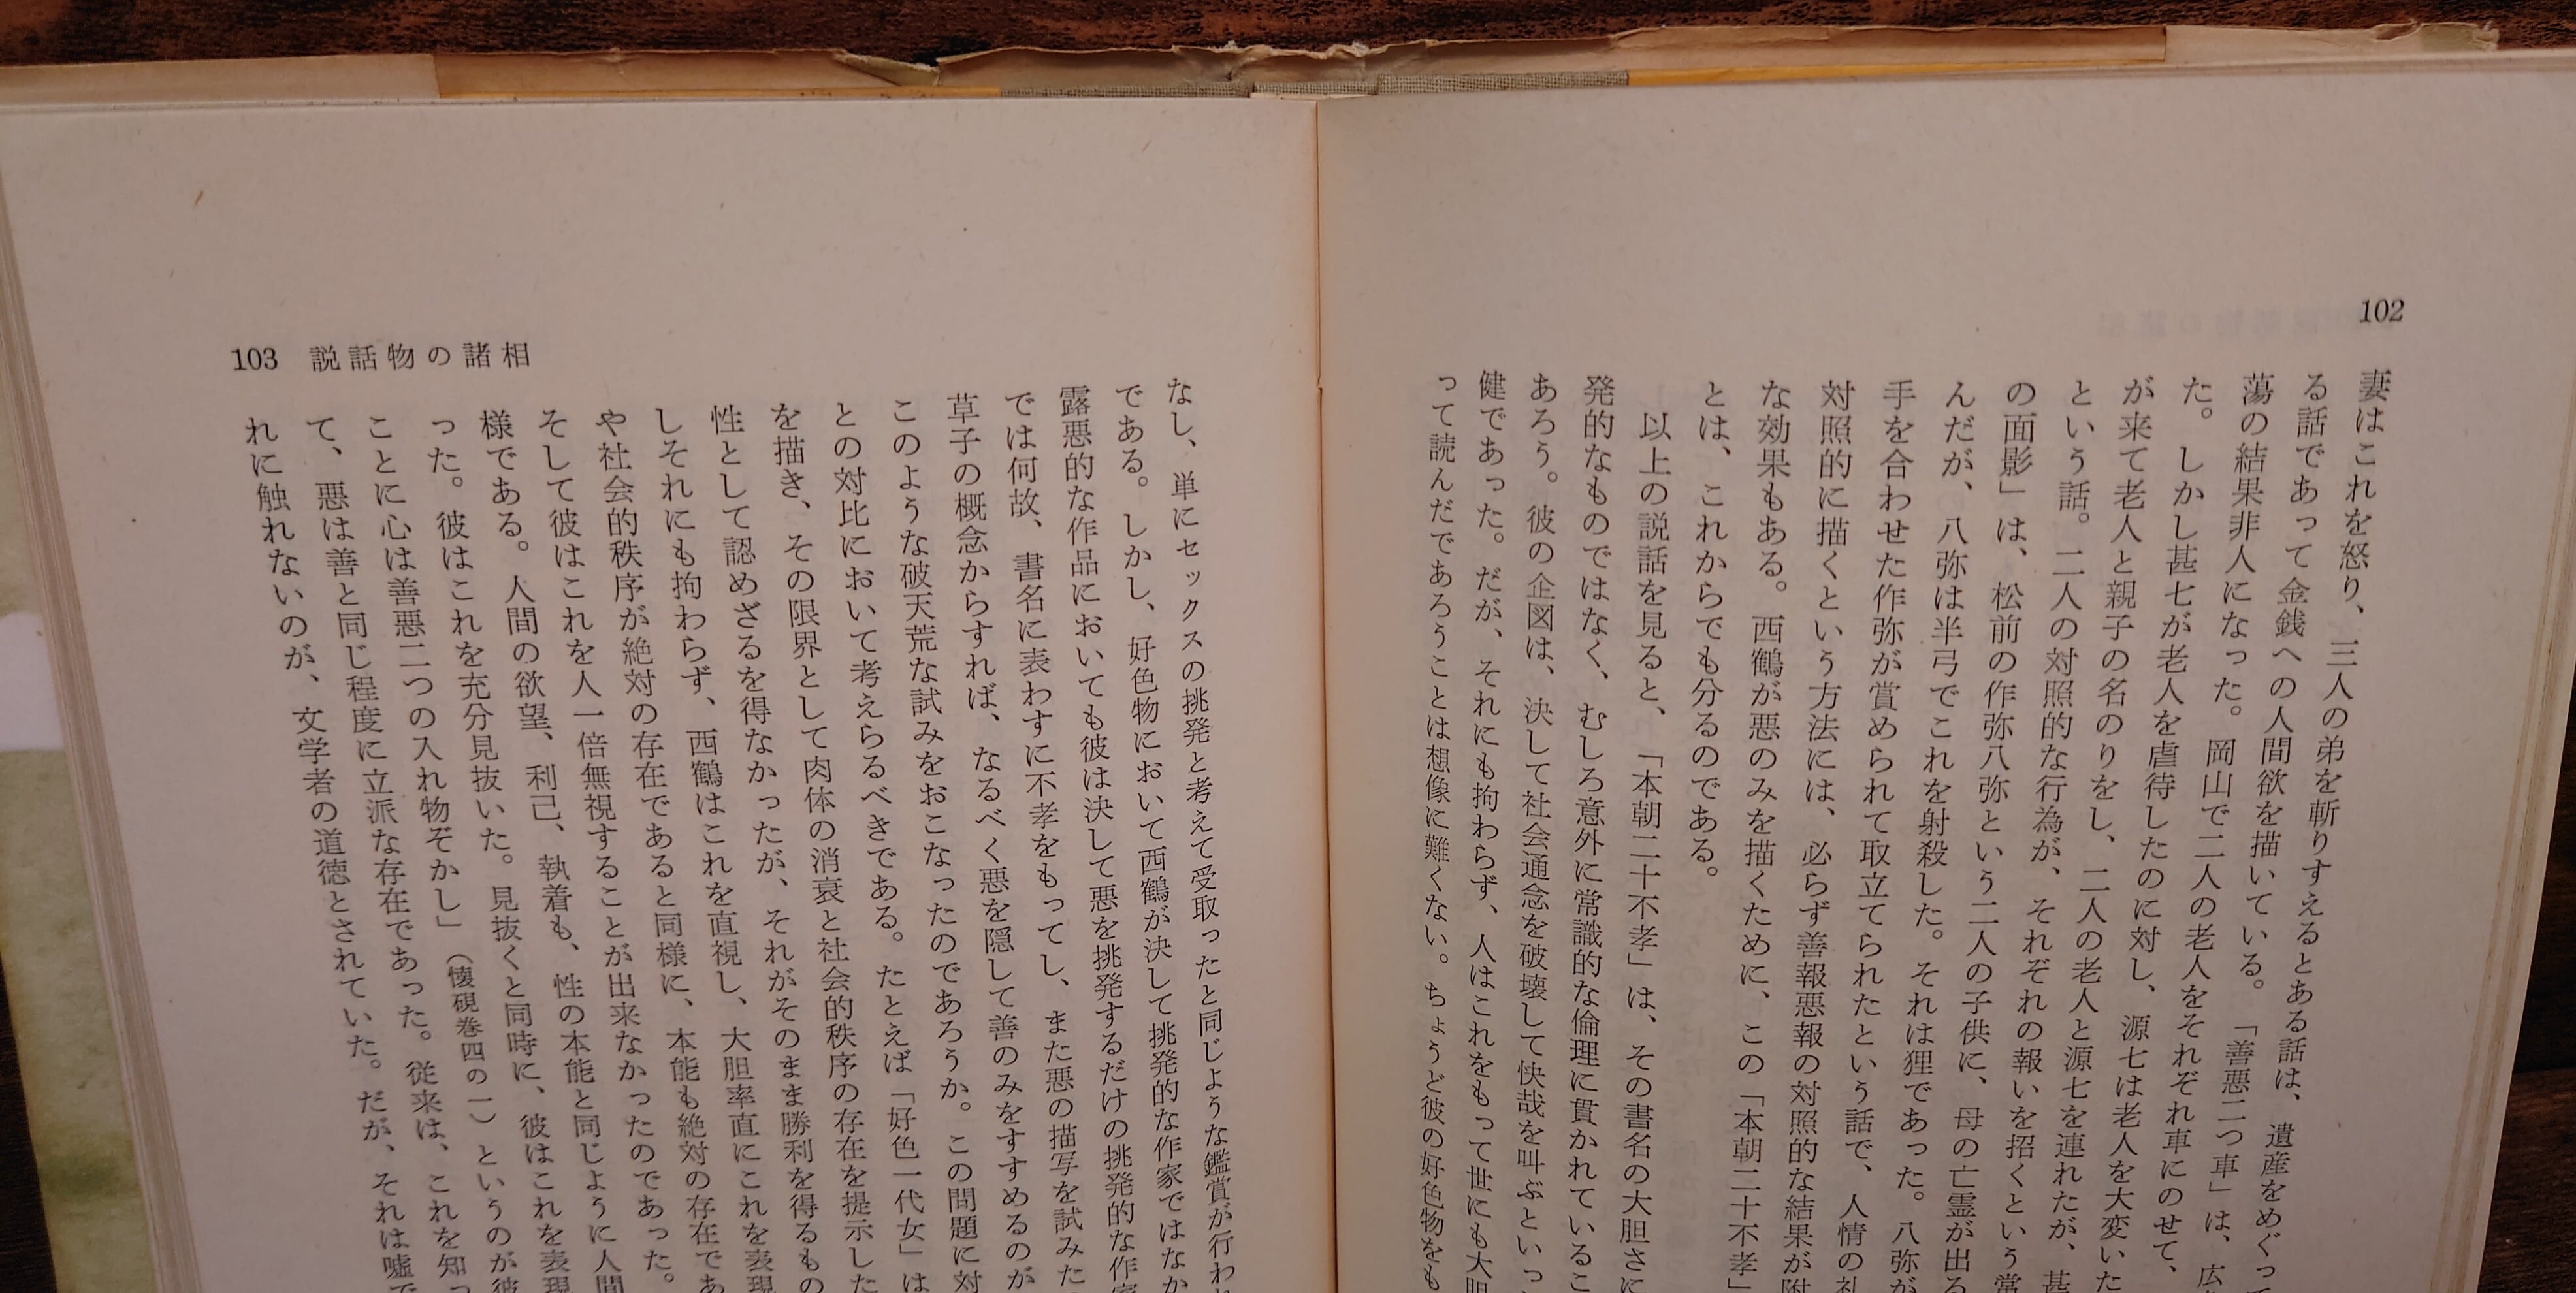 102
妻はこれを怒り、三人の弟を斬りすえるとある話は、遺産をめぐって
る話であって金銭への人間欲を描いている。「善悪二つ車」は、広
蕩の結果非人になった。岡山で二人の老人をそれぞれ車にのせて、
た。しかし甚七が老人を虐待したのに対し、源七は老人を大変いた
が来て老人と親子の名のりをし、二人の老人と源七を連れたが、甚
という話。二人の対照的な行為が、それぞれの報いを招くという常
の面影」は、松前の作弥八弥という二人の子供に、母の亡霊が出る
んだが、八弥は半弓でこれを射殺した。それは狸であった。八弥が
手を合わせた作弥が賞められて取立てられたという話で、人情の礼
対照的に描くという方法には、必らず善報悪報の対照的な結果が附
な効果もある。西鶴が悪のみを描くために、この「本朝二十不孝」
とは、これからでも分るのである。
以上の説話を見ると、「本朝二十不孝」は、その書名の大胆さに
発的なものではなく、むしろ意外に常識的な倫理に貫かれているこ
あろう。彼の企図は、決して社会通念を破壊して快哉を叫ぶといっ
健であった。だが、それにも拘わらず、人はこれをもって世にも大胆
って読んだであろうことは想像に難くない。ちょうど彼の好色物をも
103 説話物の諸相
なし、単にセックスの挑発と考えて受取ったと同じような鑑賞が行われ
である。しかし、好色物において西鶴が決して挑発的な作家ではなか
露悪的な作品においても彼は決して悪を挑発するだけの挑発的な作家
では何故、書名に表わすに不孝をもってし、また悪の描写を試みた
草子の概念からすれば、なるべく悪を隠して善のみをすすめるのが
このような破天荒な試みをおこなったのであろうか。この問題に対
との対比において考えらるべきである。たとえば「好色一代女」は
を描き、その限界として肉体の消衰と社会的秩序の存在を提示した
性として認めざるを得なかったが、それがそのまま勝利を得るもの
しそれにも拘わらず、西鶴はこれを直視し、大胆率直にこれを表現
や社会的秩序が絶対の存在であると同様に、本能も絶対の存在であ
そして彼はこれを人一倍無視することが出来なかったのであった。
様である。人間の欲望、利己、執着も、性の本能と同じように人間
った。彼はこれを充分見抜いた。見抜くと同時に、彼はこれを表現
ことに心は善悪二つの入れ物ぞかし」（懐硯巻四の一）というのが彼
て、悪は善と同じ程度に立派な存在であった。従来は、これを知っ
れに触れないのが、文学者の道徳とされていた。だが、それは嘘で